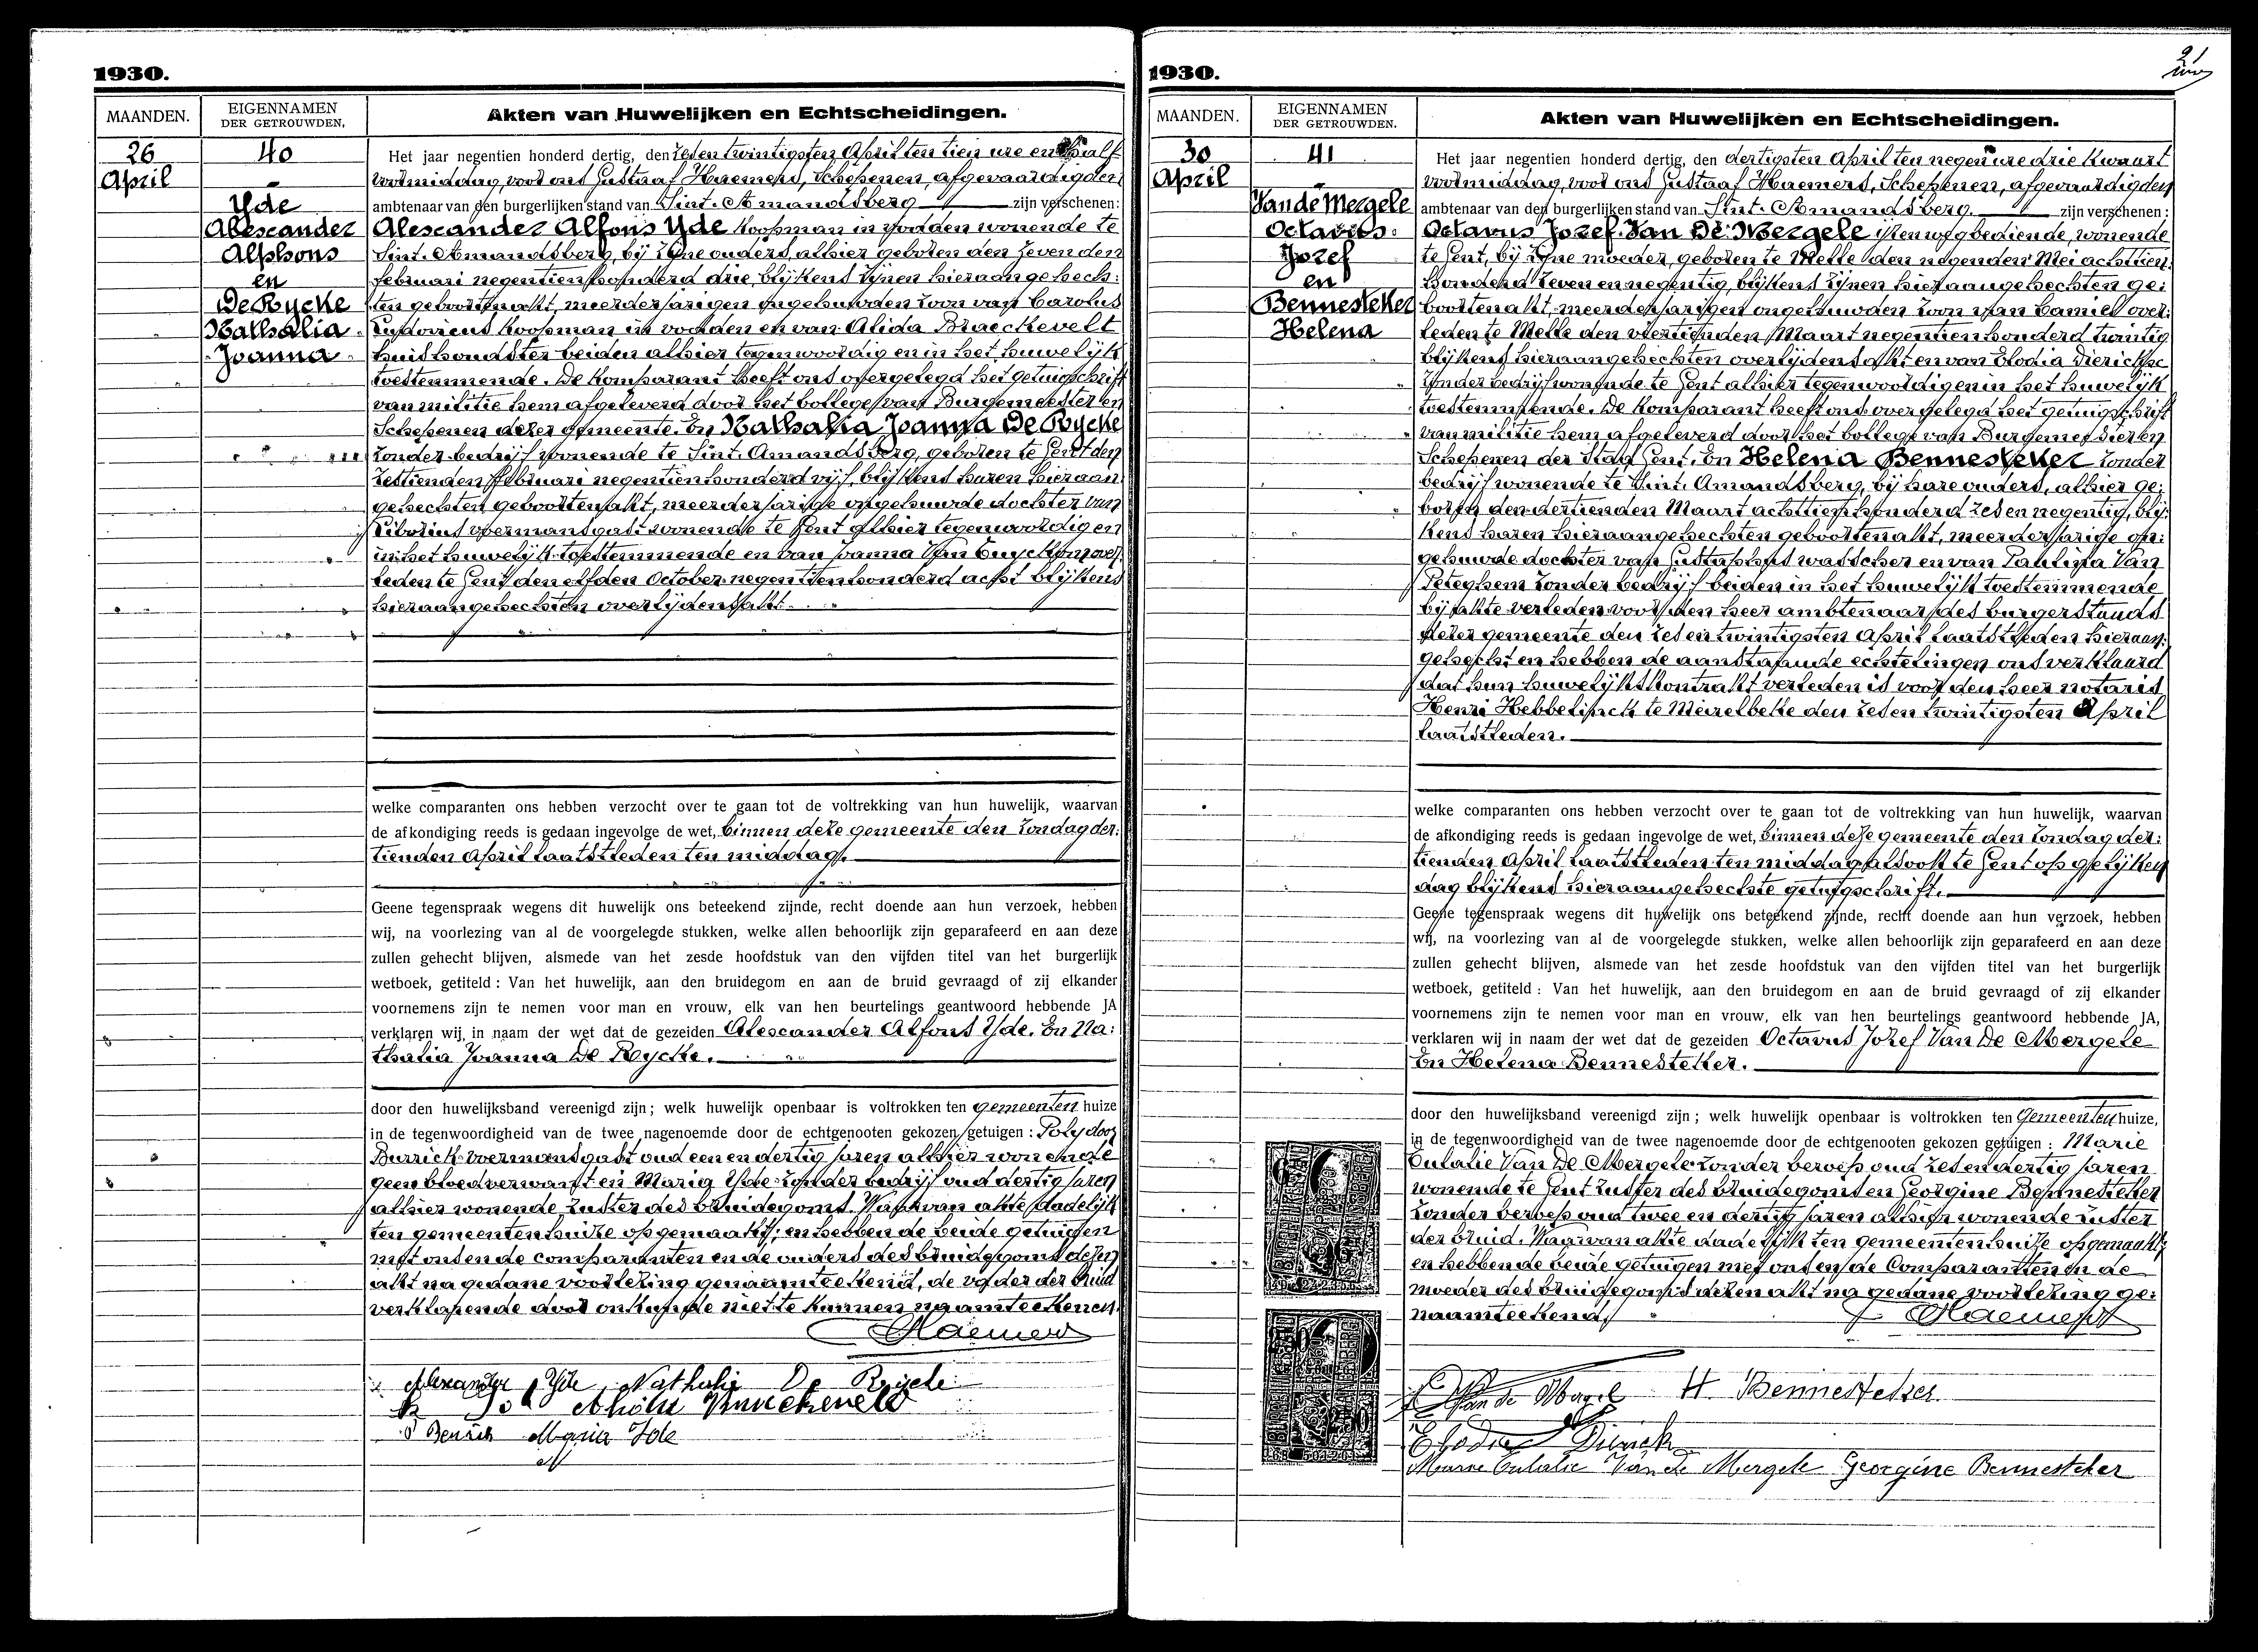 1930.
MAANDEN.
EIGENNAMEN
DER GETROUWDEN.
Akten van Huwelijken en Echtscheidingen.
26
April
40
Yde
Alexander
Alphons
en
De Rycke
Nathalia
Joanna
Het jaar negentien honderd dertig, den zes en twintigsten April ten tien ure en half
voormiddag, voor ons Gustaaf Haemers, Schepenen, afgevaardigden
ambtenaar van den burgerlijken stand van Sint-Amandsberg zijn verschenen:
Alexander Alfons Yde Koopman in vodden wonende te
Sint-Amandsberg, bij zijne ouders, alhier geboren den zevenden
februari negentien honderd drie, blijkens zijnen hieraangehech:
ten geboortenakt, meerderjarigen ongehuwden zoon van Carolus
Koopman in vodden en van Alida Braeckevelt
huishoudster beiden alhier tegenwoordig en in het huwelijk
toestemmende. De Komparant heeft ons overgelegd het getuigschrift
van militie hem afgeleverd door het College van Burgemeester en
Schepenen dezer gemeente. En Nathalia Joanna De Rycke
zonder bedrijf wonende te Sint-Amandsberg, geboren te Gent den
zestienden februari negentien honderd vijf, blijkens haren hieraan
gehechten geboortenakt, meerderjarige ongehuwde dochter van
Liborius voermansgast wonende te Gent alhier tegenwoordig en
in het huwelijk toestemmende en van Joanna Van over
leden te Gent den elfden October negentien honderd acht blijkens
hieraangehechten overlijdensakt.
welke comparanten ons hebben verzocht over te gaan tot de voltrekking van hun huwelijk, waarvan
de afkondiging reeds is gedaan ingevolge de wet, binnen deze gemeente den Zondag der:
tienden April laatstleden ten middag.
Geene tegenspraak wegens dit huwelijk ons beteekend zijnde, recht doende aan hun verzoek, hebben
wij, na voorlezing van al de voorgelegde stukken, welke allen behoorlijk zijn geparafeerd en aan deze
zullen gehecht blijven, alsmede van het zesde hoofdstuk van den vijfden titel van het burgerlijk
wetboek, getiteld : Van het huwelijk, aan den bruidegom en aan de bruid gevraagd of zij elkander
voornemens zijn te nemen voor man en vrouw, elk van hen beurtelings geantwoord hebbende JA
verklaren wij, in naam der wet dat de gezeiden Alexander Alfons Yde. En Na:
thalia Joanna De Rycke.
door den huwelijksband vereenigd zijn; welk huwelijk openbaar is voltrokken ten gemeenten huize
in de tegenwoordigheid van de twee nagenoemde door de echtgenooten gekozen getuigen : Polydoor
voermansgast oud een en dertig jaren alhier wonende
geen bloedverwant en Maria Yde zonder bedrijf oud dertig jaren
alhier wonende zuster des bruidegoms. Waarvan akte dadelijk
ten gemeentenhuize opgemaakt; en hebben de beide getuigen
met ons en de comparanten en de ouders des bruidegoms dezen
akt na gedane voorlezing genaamteekend, de vader der bruid
verklarende door onkunde niet te kunnen naamteekenen.
Haemers
Alexander Yde Nathalie De Rycke
Maria Yde
1930.
MAANDEN.
EIGENNAMEN
DER GETROUWDEN.
Akten van Huwelijken en Echtscheidingen.
30
April
41
Van de Mergele
Octavus
Jozef
en
Bennesteker
Helena
Het jaar negentien honderd dertig, den dertigsten April ten negen ure drie kwaart
voormiddag, voor ons Gustaaf Haemers, Schepenen, afgevaardigden
ambtenaar van den burgerlijken stand van Sint-Amandsberg. zijn verschenen :
Octavus Jozef Van De Mergele ijzenwegbediende, wonende
te Gent, bij zijne moeder, geboren te Melle den negenden Mei achttien
honderd zeven en negentig, blijkens zijnen hieraangehechten ge:
boortenakt, meerderjarigen ongehuwden zoon van Camiel over:
leden te Melle den veertienden Maart negentien honderd twintig
blijkens hieraangehechten overlijdensakt en van Elodia Dierickx
zonder bedrijf wonende te Gent alhier tegenwoordig en in het huwelijk
toestemmende. De Komparant heeft ons overgelegd het getuigschrift
van militie hem afgeleverd door het College van Burgemeester en
Schepenen der Stad Gent. En Helena Bennesteker zonder
bedrijf wonende te Sint-Amandsberg, bij hare ouders, alhier ge:
boren den dertienden Maart achttien honderd zes en negentig, blij:
kens haren hieraangehechten geboortenakt, meerderjarige on:
gehuwde dochter van Gustaphus wasscher en van Paulina Van
Peteghem zonder bedrijf beiden in het huwelijk toestemmende
bij akte verleden voor den heer ambtenaar des burgerstands
dezer gemeente den zes en twintigsten April laatstleden hieraan:
gehecht en hebben de aanstaande echtelingen ons verklaard
dat hun huwelijkskontrakt verleden is voor den heer notaris
Henri Hebbelinck te Meirelbeke den zes en twintigsten April
laatstleden.
welke comparanten ons hebben verzocht over te gaan tot de voltrekking van hun huwelijk, waarvan
de afkondiging reeds is gedaan ingevolge de wet, binnen deze gemeente den Zondag der:
tienden April laatstleden ten middag alsook te Gent op gelijken
dag blijkens hieraangehechte getuigschrift.
Geene tegenspraak wegens dit huwelijk ons beteekend zijnde, recht doende aan hun verzoek, hebben
wij, na voorlezing van al de voorgelegde stukken, welke allen behoorlijk zijn geparafeerd en aan deze
zullen gehecht blijven, alsmede van het zesde hoofdstuk van den vijfden titel van het burgerlijk
wetboek, getiteld : Van het huwelijk, aan den bruidegom en aan de bruid gevraagd of zij elkander
voornemens zijn te nemen voor man en vrouw, elk van hen beurtelings geantwoord hebbende JA,
verklaren wij in naam der wet dat de gezeiden Octavus Jozef Van De Mergele
En Helena Bennesteker.
door den huwelijksband vereenigd zijn; welk huwelijk openbaar is voltrokken ten Gemeenten huize,
in de tegenwoordigheid van de twee nagenoemde door de echtgenooten gekozen getuigen : Marie
Eulalie Van De Mergele zonder beroep oud zes en dertig jaren
wonende te Gent zuster des bruidegoms en Georgine Bennesteker
zonder beroep oud twee en dertig jaren alhier wonende zuster
der bruid. Waarvan akte dadelijk ten gemeentenhuize opgemaakt;
en hebben de beide getuigen met ons en de Comparanten en de
moeder des bruidegoms dezen akt na gedane voorlezing ge:
naamteekend.
Haemers
H. Bennesteker
Elodie
Marie Eulalie Van de Mergele Georgine Bennesteker